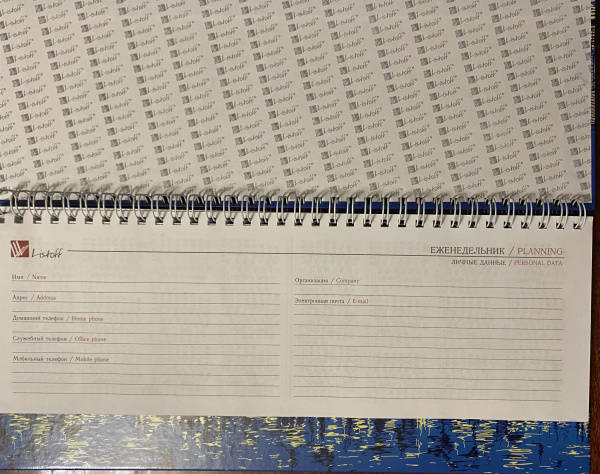 Listoff
ЕЖЕНЕДЕЛЬНИК / PLANNING
ЛИЧНЫЕ ДАННЫЕ / PERSONAL DATA
Имя / Name
Адрес / Address
Домашний телефон / Home phone
Служебный телефон / Office phone
Мобильный телефон / Mobile phone
Организация / Company
Электронная почта / E-mail